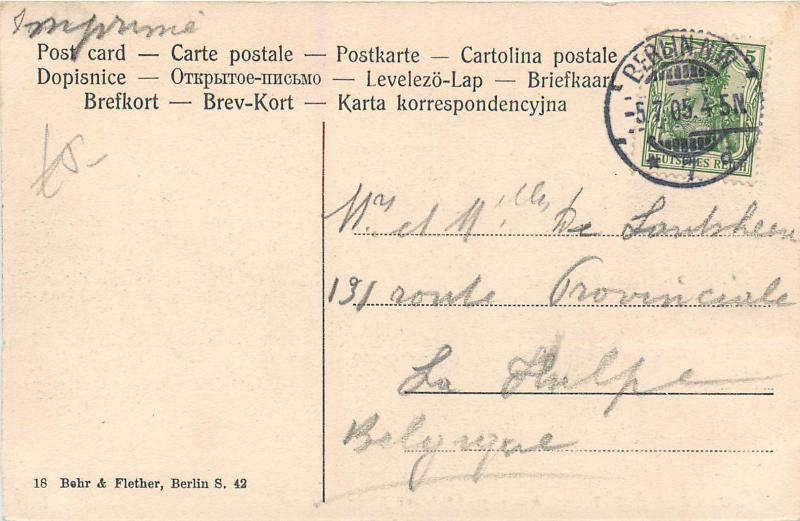 Imprimé
Post card — Carte postale — Postkarte — Cartolina postale
Dopisnice — Открытое-письмо — Levelező-Lap — Briefkaar
Brefkort — Brev-Kort — Karta korrespondencyjna
5
BERLIN N.W.
5.7.05.4-5N.
DEUTSCHES REICH
Mrs et Melles De
191 route Provinciale
La Hulpe
Belgique
18 Behr & Flether, Berlin S. 42